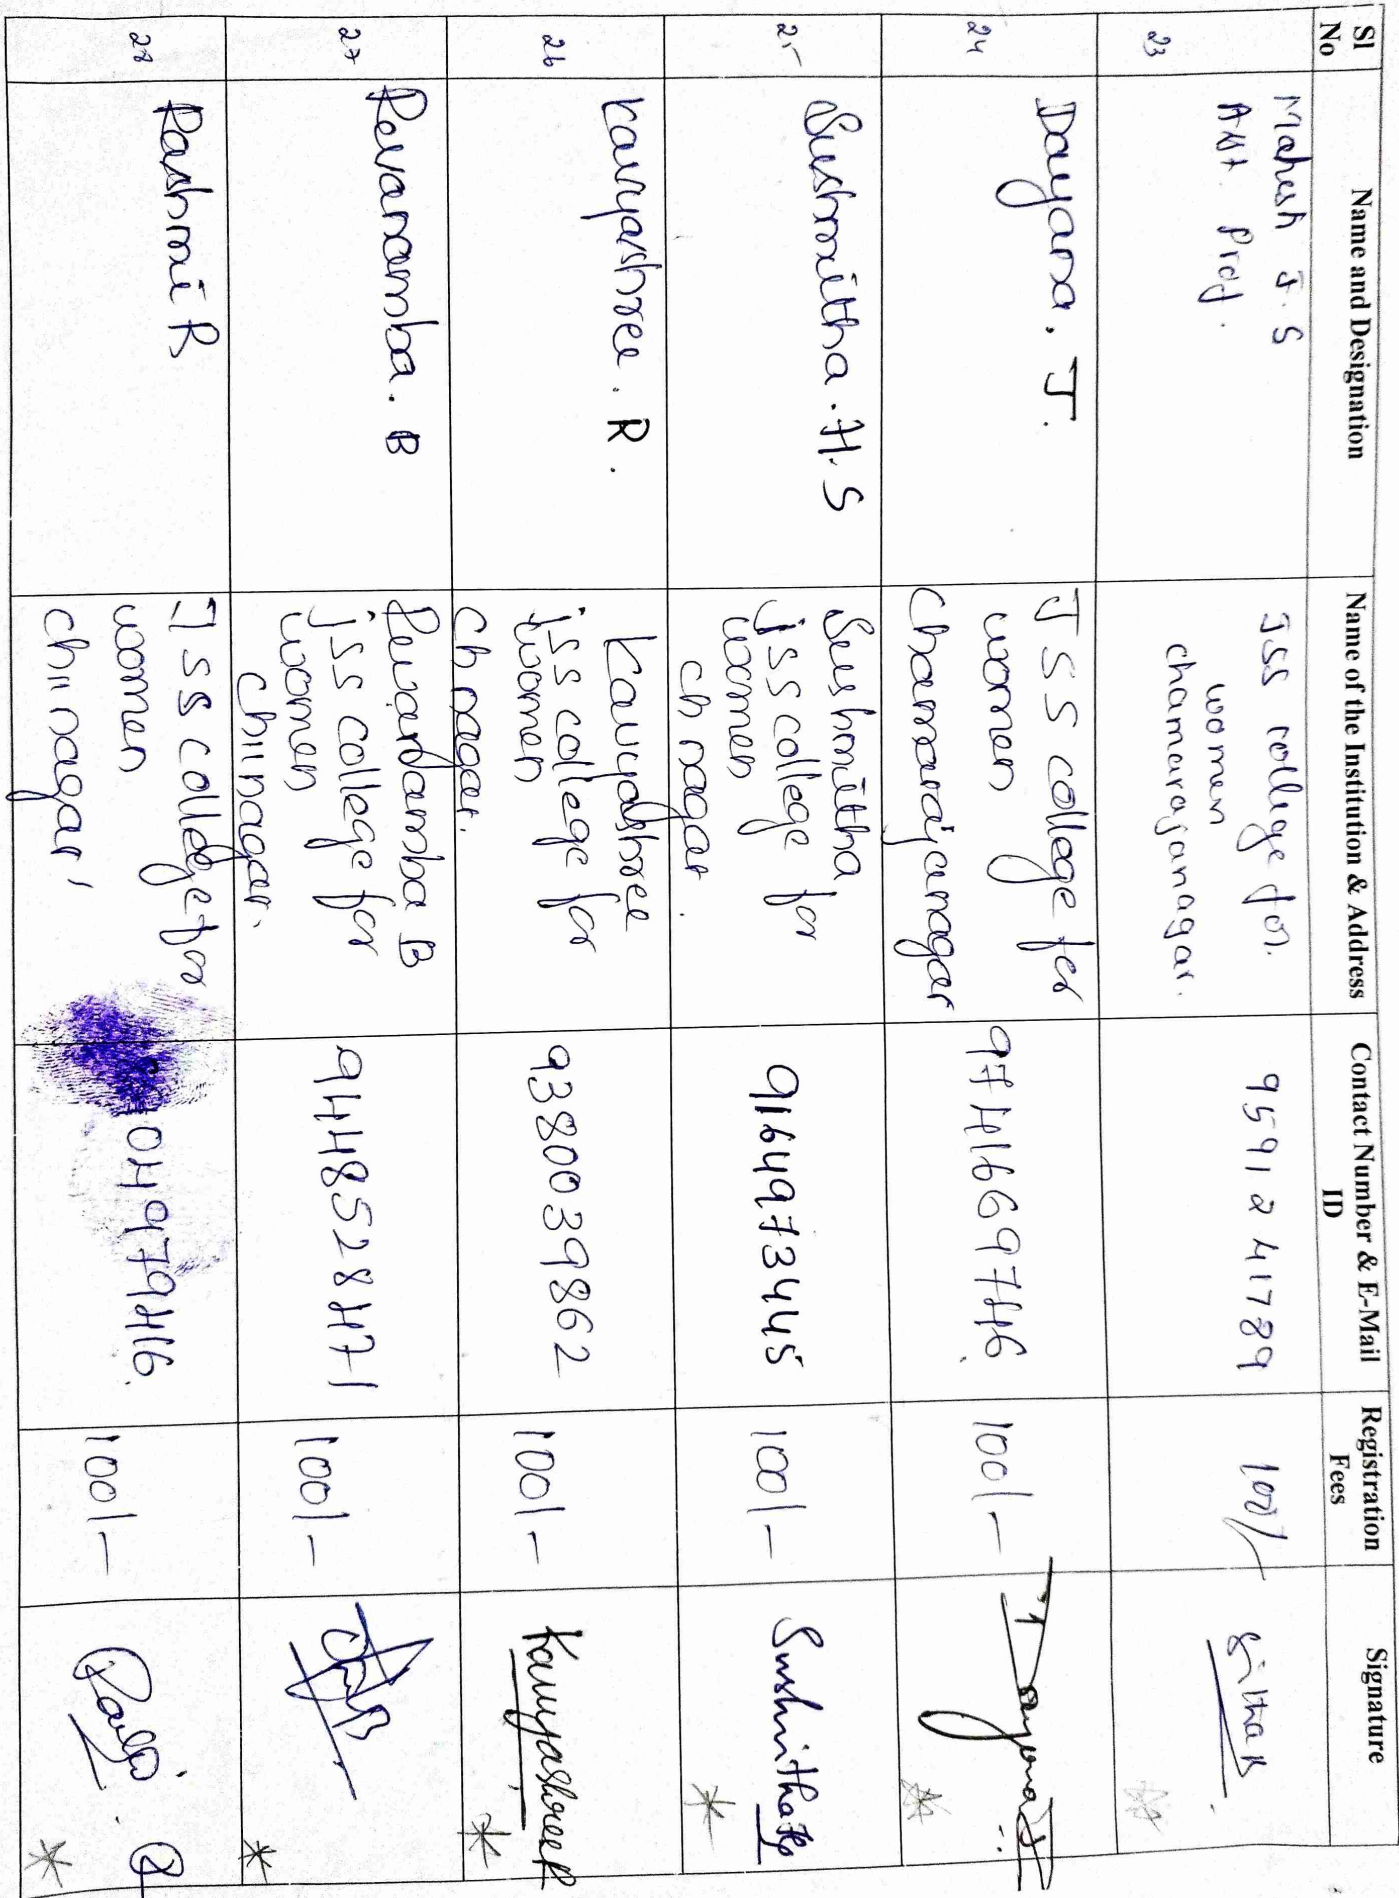 Sl No Name and Designation Name of the Institution & Address Contact Number & E-Mail ID Registration Fees Signature
23 Mahesh J. S
Asst Prof.
JSS college for.
women
chamarajanagar.
9591241789
100/-
24 Dayana. J.
JSS college for
women
Chamarajanagar
9741669746
100/-
Dayana J
25 Sushmitha. H. S
Sushmitha
jss college for
women
ch nagar.
9164973445
100/-
Sushmitha
26 Kavyashree. R.
Kavyashree
jss college for
women
ch nagar.
9380039862
100/-
Kavyashree R
27 Revanamba. B
Revanamba B
jss college for
women
ch11nagar.
9448528471
100/-
28 Rashmi R
JSS college for
women
ch11nagar,
100/-